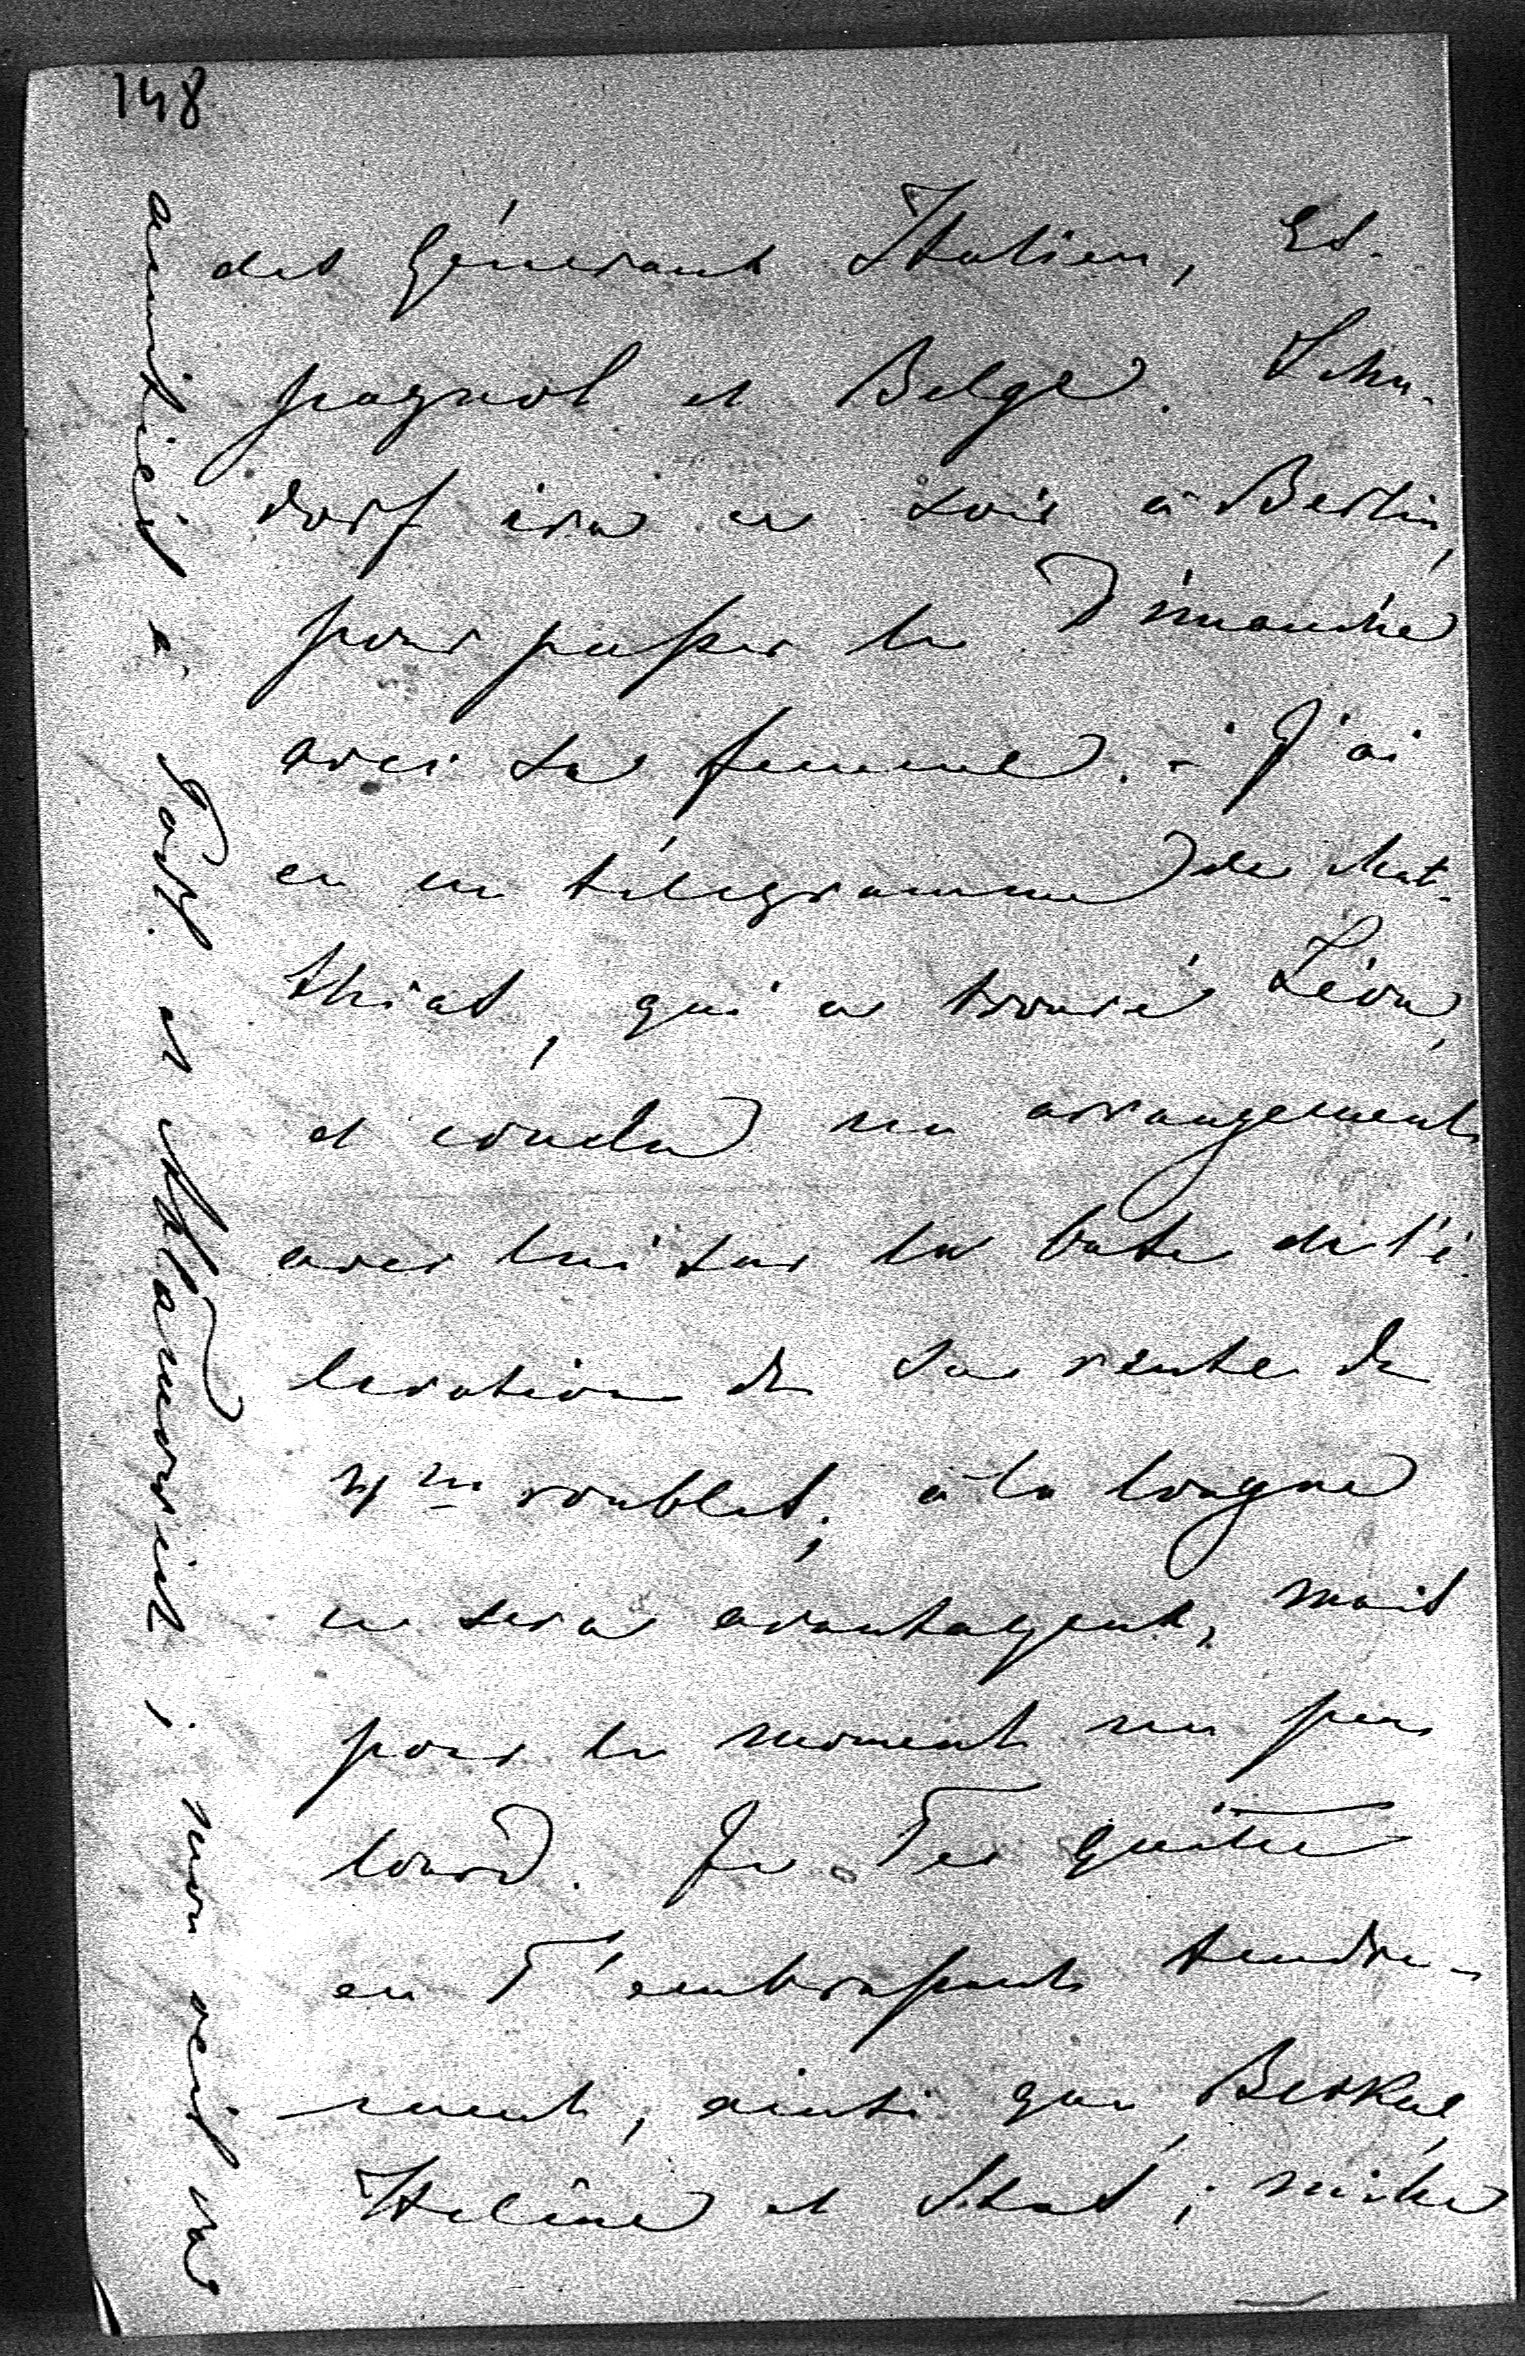 148
des Généraux Italien, Es-
pagnol et Belge. Schu-
dorf ira ce soir à Berlin,
pour passer le Dimanche
avec sa femme. - J'ai
eu un télégramme de Mat-
thias, qui a trouvé Léon,
et conclu un arrangement
avec lui sur la base de l'é-
levation de sa rente de
4m roubles; à la longue
ce sera avantageux, mais
pour le moment un peu
lourd. Je Te quitte
en T'embrassant tendre-
ment, ainsi que,
Helène et Stas; mille
amitiés à et ; mon